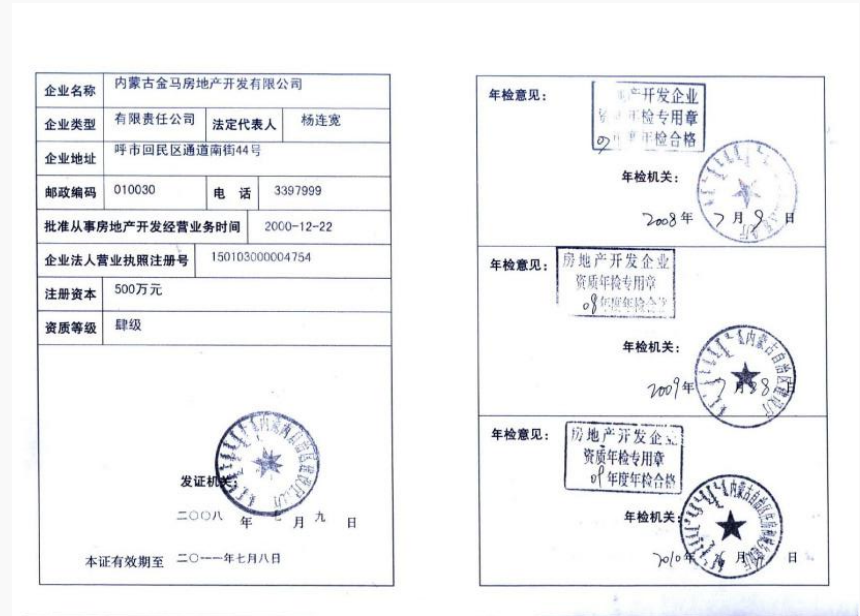 企业名称 内蒙古金马房地产开发有限公司
企业类型 有限责任公司 法定代表人 杨连宽
企业地址 呼市回民区通道南街44号
邮政编码 010030 电 话 3397999
批准从事房地产开发经营业务时间 2000-12-22
企业法人营业执照注册号 150103000004754
注册资本 500万元
资质等级 肆级
发证机关:
二〇〇八 年 七 月 九 日
本证有效期至 二〇一一年七月八日
年检意见:
产开发企业
年检专用章
年检合格
年检机关:
2008年 7月9日
年检意见:
房地产开发企业
资质年检专用章
08年度年检合格
年检机关:
内蒙古自治区建设厅
2009年 7月 日
年检意见:
房地产开发企业
资质年检专用章
年度年检合格
年检机关:
内蒙古自治区住房和城乡建设厅
2010年 月 日